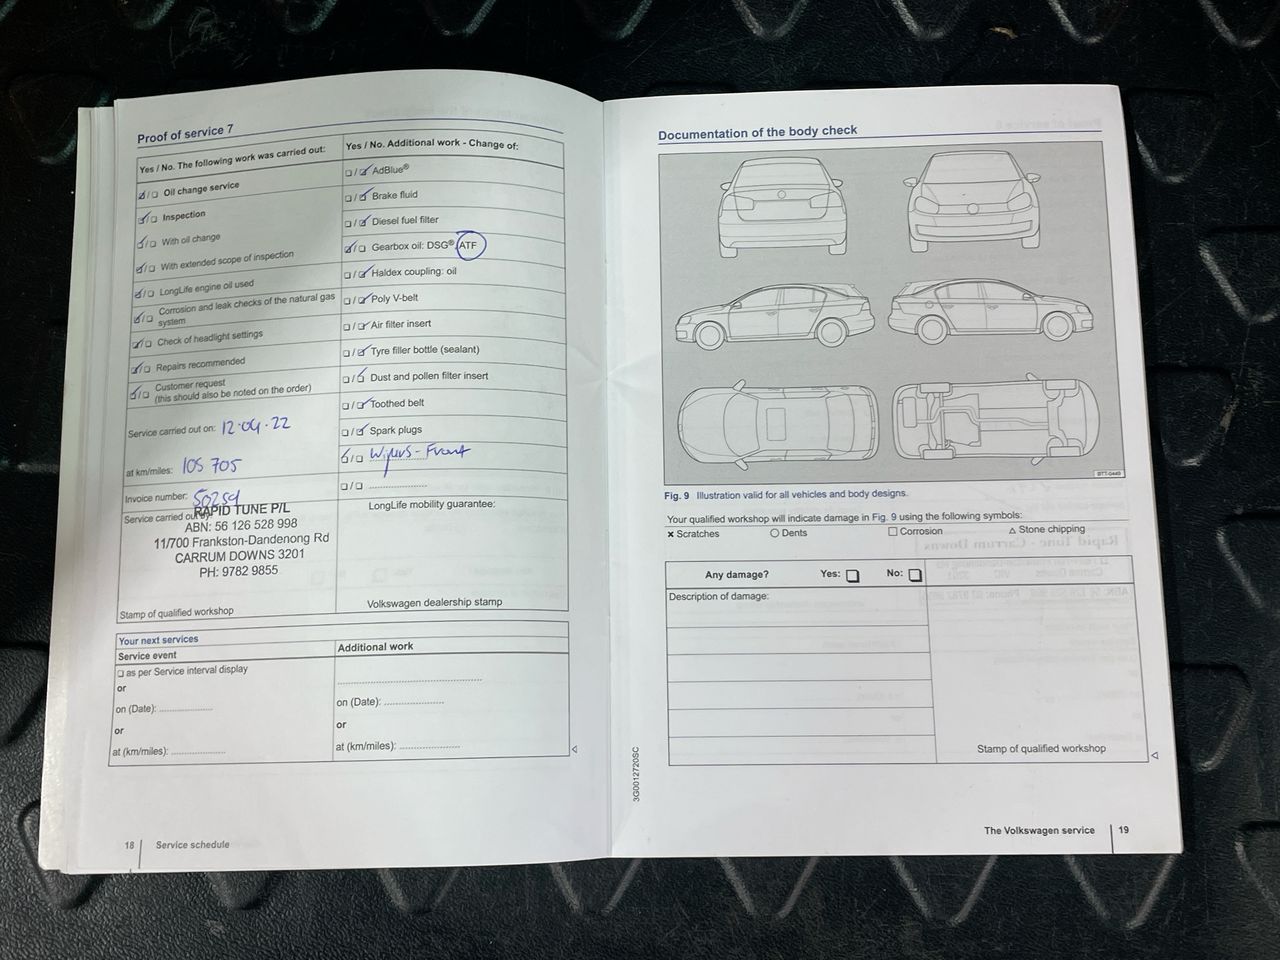 Proof of service 7
Yes / No. The following work was carried out:
☑/☐ Oil change service
☑/☐ Inspection
☑/☐ With oil change
☑/☐ With extended scope of inspection
☑/☐ LongLife engine oil used
☑/☐ Corrosion and leak checks of the natural gas
system
☑/☐ Check of headlight settings
☑/☐ Repairs recommended
☑/☐ Customer request
(this should also be noted on the order)
Service carried out on: 12.04.22
at km/miles: 105 705
Invoice number: 50259
Service carried out by:
RAPID TUNE P/L
ABN: 56 126 528 998
11/700 Frankston-Dandenong Rd
CARRUM DOWNS 3201
PH: 9782 9855
Stamp of qualified workshop
Yes / No. Additional work - Change of:
☐/☑ AdBlue®
☐/☑ Brake fluid
☐/☑ Diesel fuel filter
☑/☐ Gearbox oil: DSG®, ATF
☐/☑ Haldex coupling: oil
☐/☑ Poly V-belt
☐/☑ Air filter insert
☐/☑ Tyre filler bottle (sealant)
☐/☑ Dust and pollen filter insert
☐/☑ Toothed belt
☐/☑ Spark plugs
☑/☐ Wipers - Front
☐/☐ ....................
LongLife mobility guarantee:
Volkswagen dealership stamp
Your next services
Service event
☐ as per Service interval display
or
on (Date): ....................
or
at (km/miles): ....................
Additional work
..................................................
on (Date): ....................
or
at (km/miles): ....................
18 Service schedule
Documentation of the body check
BTT-0449
Fig. 9 Illustration valid for all vehicles and body designs.
Your qualified workshop will indicate damage in Fig. 9 using the following symbols:
× Scratches ○ Dents □ Corrosion △ Stone chipping
Any damage? Yes: ☐ No: ☐
Description of damage:
Stamp of qualified workshop
3G0012720SC
The Volkswagen service 19